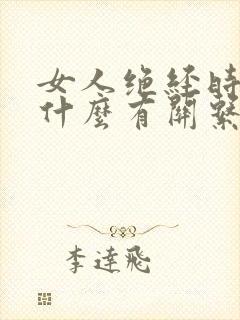 女人绝经时
什麼有關繫
李達飛